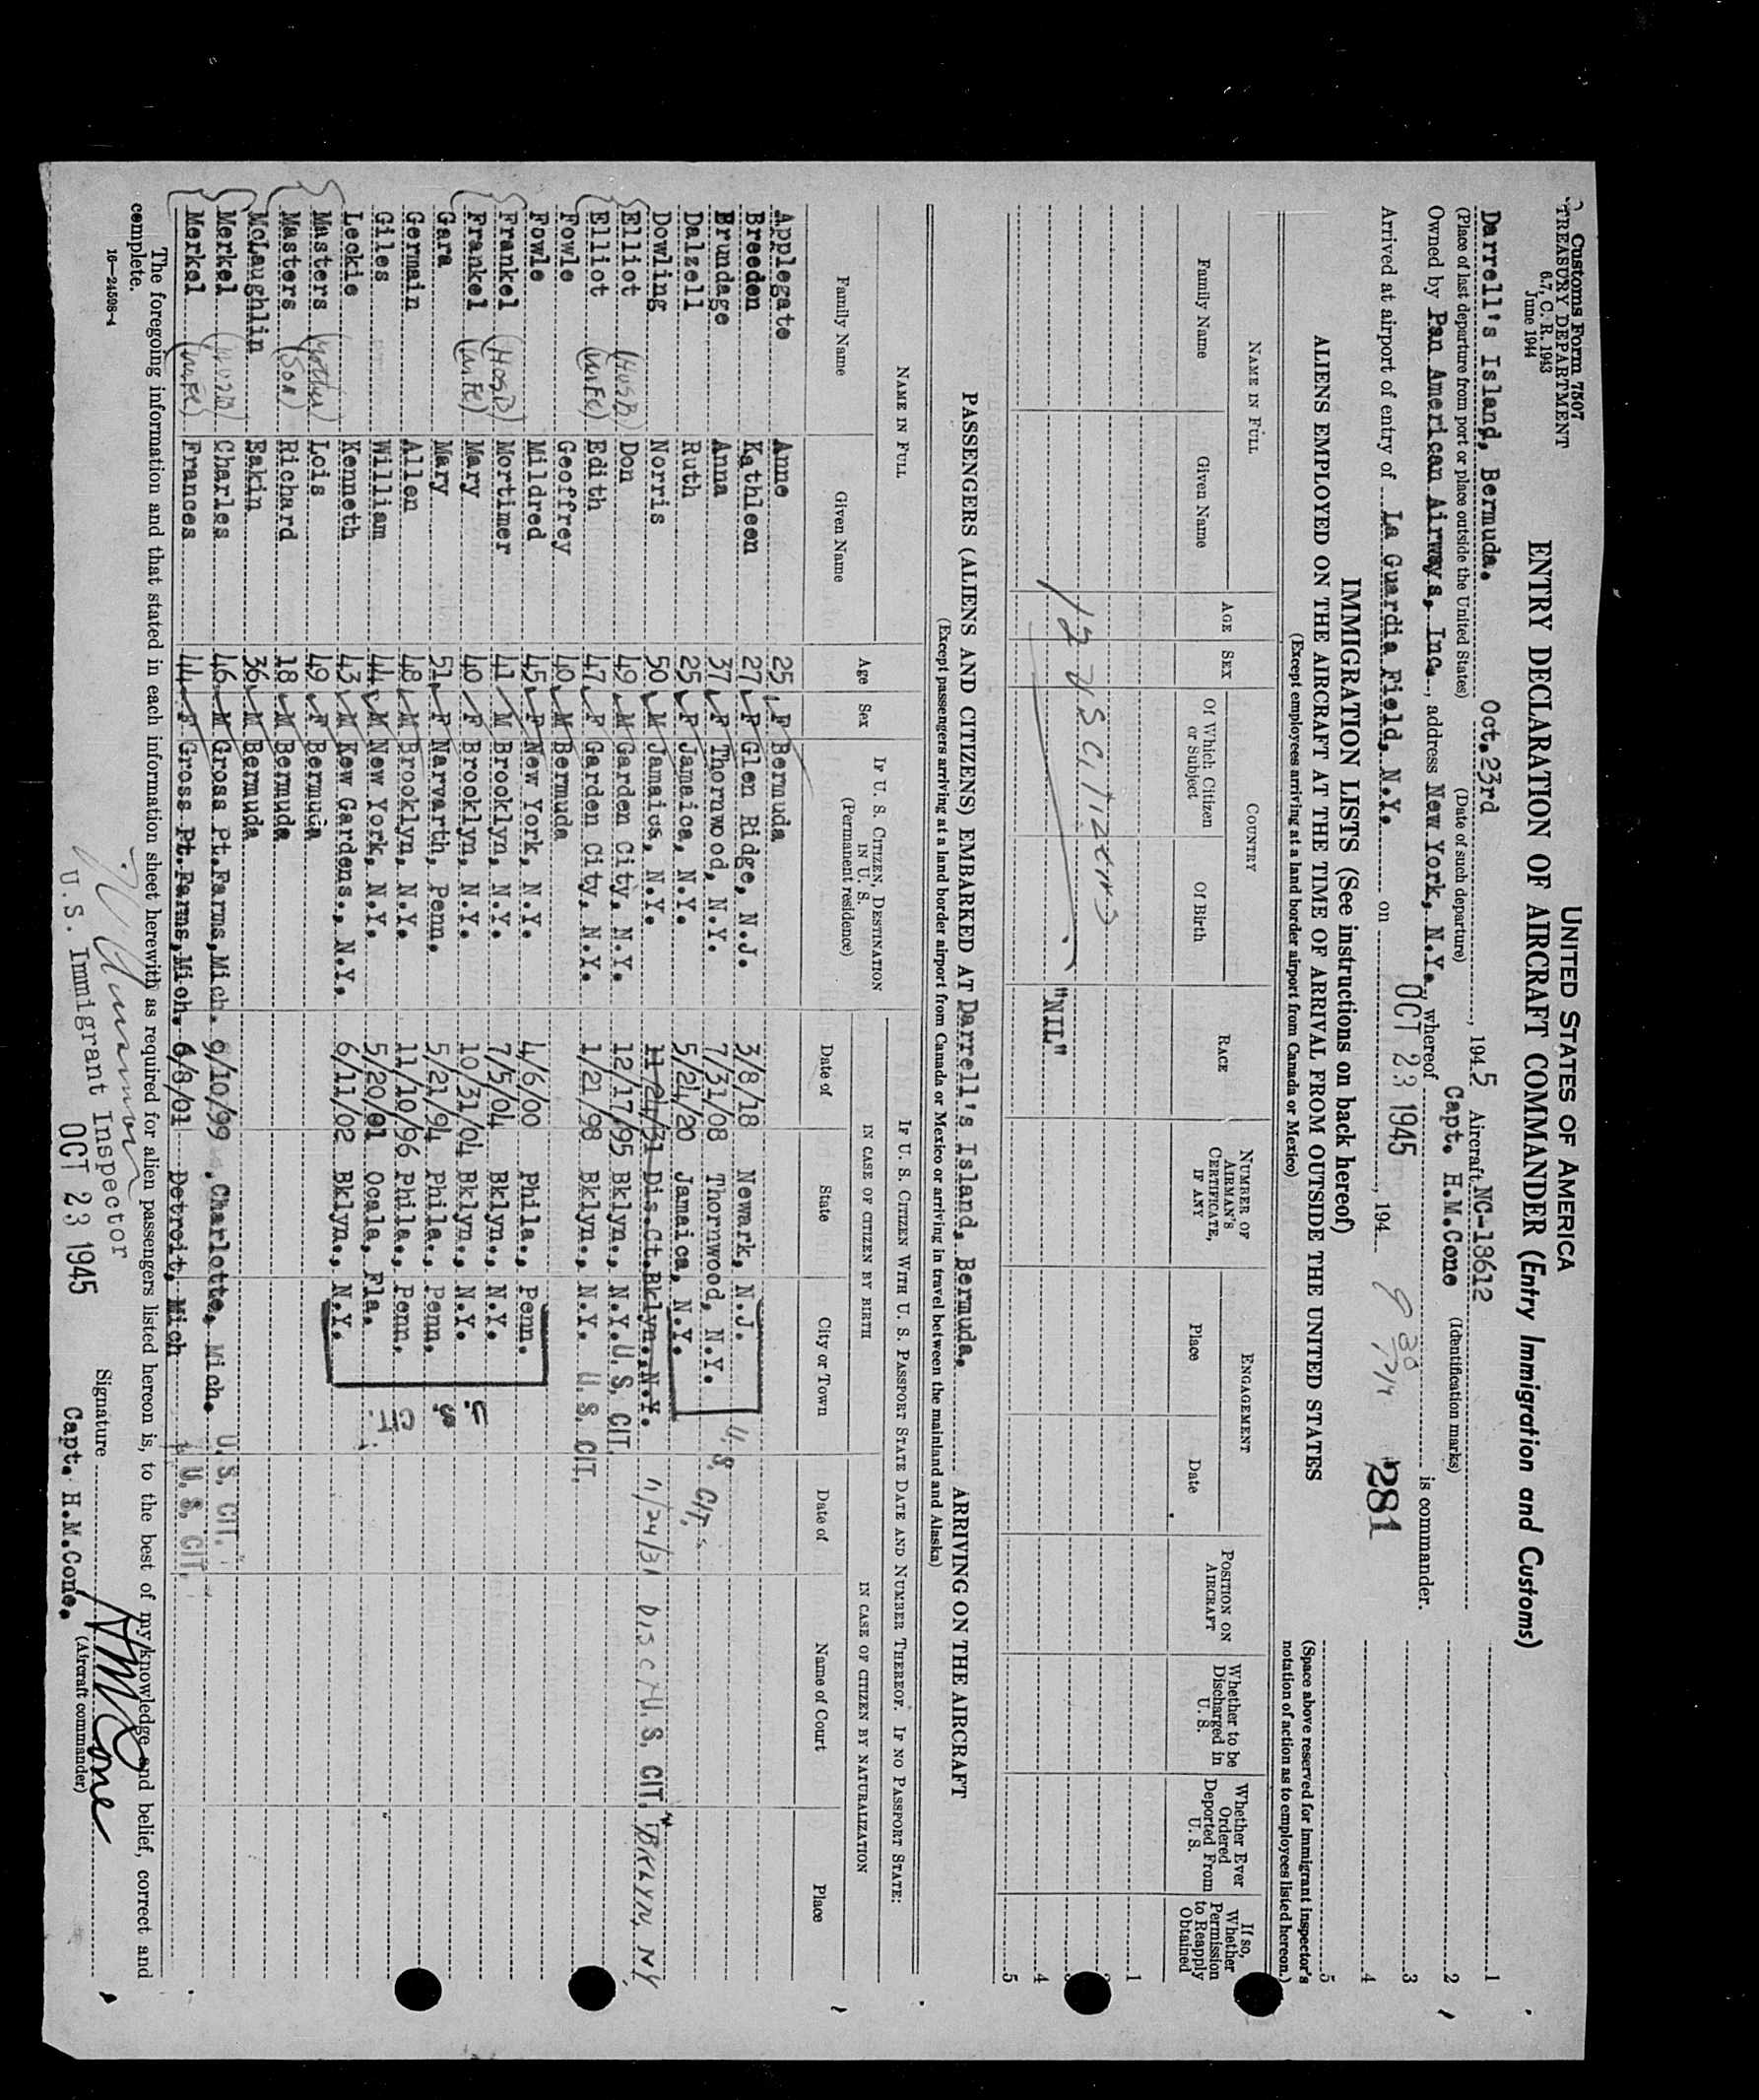 Customs Form 7507
TREASURY DEPARTMENT
6.7, C. R. 1943
June 1944
UNITED STATES OF AMERICA
ENTRY DECLARATION OF AIRCRAFT COMMANDER (Entry Immigration and Customs)
Darrell's Island, Bermuda. Oct. 23rd, 1945 Aircraft NC-18612
(Place of last departure from port or place outside the United States) (Date of such departure) (Identification marks)
Owned by Pan American Airways, Inc., address New York, N.Y., whereof Capt. H.M.Cone is commander.
Arrived at airport of entry of La Guardia Field, N.Y. on OCT 23 1945, 194 9 30 281
1
2
3
4
5
(Space above reserved for immigrant inspector's notation of action as to employees listed hereon.)
IMMIGRATION LISTS (See instructions on back hereof)
ALIENS EMPLOYED ON THE AIRCRAFT AT THE TIME OF ARRIVAL FROM OUTSIDE THE UNITED STATES
(Except employees arriving at a land border airport from Canada or Mexico)
NAME IN FULL AGE SEX COUNTRY RACE NUMBER OF AIRMAN'S CERTIFICATE, IF ANY ENGAGEMENT POSITION ON AIRCRAFT Whether to be Discharged in U. S. Whether Ever Ordered Deported From U. S. If so, Whether Permission to Reapply Obtained
Family Name Given Name Of Which Citizen or Subject Of Birth Place Date
1
12 U S Citizens
"NIL" 4
5
PASSENGERS (ALIENS AND CITIZENS) EMBARKED AT Darrell's Island, Bermuda. ARRIVING ON THE AIRCRAFT
(Except passengers arriving at a land border airport from Canada or Mexico or arriving in travel between the mainland and Alaska)
NAME IN FULL Age Sex IF U. S. CITIZEN, DESTINATION IN U. S. (Permanent residence) IF U. S. CITIZEN WITH U. S. PASSPORT STATE DATE AND NUMBER THEREOF. IF NO PASSPORT STATE:
IN CASE OF CITIZEN BY BIRTH IN CASE OF CITIZEN BY NATURALIZATION
Family Name Given Name Date of State City or Town Date of Name of Court Place
Applegate Anne 25 F Bermuda
Breeden Kathleen 27 F Glen Ridge, N.J. 3/8/18 Newark, N.J.
Brundage Anna 37 F Thornwood, N.Y. 7/31/08 Thornwood, N.Y. U. S. CIT.
Dalzell Ruth 25 F Jamaica, N.Y. 5/24/20 Jamaica, N.Y.
Dowling Norris 50 M Jamaica, N.Y. 11/24/31 Dis.Ct.Bklyn.,N.Y. 11/24/31 DIS CT U. S. CIT. BKLYN, NY
Elliot (HUSB) Don 49 M Garden City, N.Y. 12/17/95 Bklyn., N.Y. U. S. CIT.
Elliot (WIFE) Edith 47 F Garden City, N.Y. 1/21/98 Bklyn., N.Y. U. S. CIT.
Fowle Geoffrey 40 M Bermuda
Fowle Mildred 45 F New York, N.Y. 4/6/00 Phila., Penn.
Frankel (HUSB) Mortimer 41 M Brooklyn, N.Y. 7/5/04 Bklyn., N.Y.
Frankel (WIFE) Mary 40 F Brooklyn, N.Y. 10/31/04 Bklyn., N.Y.
Gara Mary 51 F Narvarth, Penn. 5/21/94 Phila., Penn.
Germain Allen 48 M Brooklyn, N.Y. 11/10/96 Phila., Penn.
Giles William 44 M New York, N.Y. 5/20/01 Ocala, Fla.
Leckie Kenneth 43 M Kew Gardens., N.Y. 6/11/02 Bklyn., N.Y.
Masters (Mother) Lois 49 F Bermuda
Masters (SON) Richard 18 M Bermuda
McLaughlin Eakin 36 M Bermuda
Merkel (HUSB) Charles 46 M Gross Pt.Farms,Mich. 9/10/99 Charlotte, Mich. U. S. CIT.
Merkel (WIFE) Frances 44 F Gross Pt.Farms,Mich. 6/8/01 Detroit, Mich U. S. CIT.
The foregoing information and that stated in each information sheet herewith as required for alien passengers listed hereon is, to the best of my knowledge and belief, correct and
complete.
16—24598-4
U. S. Immigrant Inspector
OCT 23 1945
Signature HM Cone
Capt. H.M.Cone. (Aircraft commander)